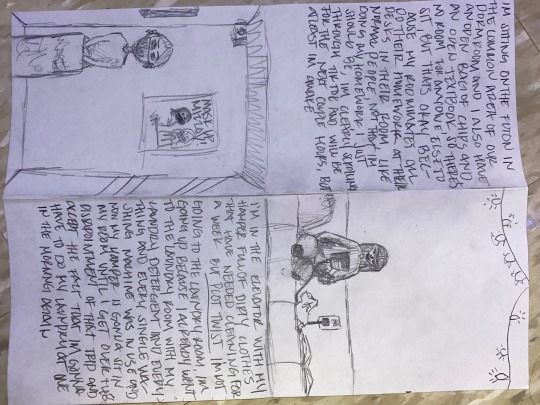 I'M SITTING ON THE FUTON IN
THE COMMON AREA OF OUR
DORM ROOM AND I ALSO HAVE
AN OPEN BAG OF CHIPS AND
AN OPEN TEXTBOOK SO THERE'S
NO ROOM FOR ANYONE ELSE TO
SIT BUT THAT'S OKAY BEC-
AUSE MY ROOMMATES ALL
DO THEIR HOMEWORK AT THEIR
DESKS IN THEIR ROOM LIKE
NORMAL PEOPLE NOT THAT I'M
DOING MY HOMEWORK I JUST
SHOULD BE, I'M CLEARLY SCROLLING
THROUGH AND WILL BE
FOR THE NEXT COUPLE HOURS, BUT
AT LEAST I'M AWAKE
I'M IN THE ELEVATOR WITH MY
HAMPER FULL OF DIRTY CLOTHES
THAT HAVE NEEDED CLEANING FOR
A WEEK BUT PLOT TWIST I'M NOT
GOING TO THE LAUNDRY ROOM, I'M
GOING UP BECAUSE I ALREADY WENT
TO THE LAUNDRY ROOM WITH MY
LAUNDRY DETERGENT AND EVERY-
THING AND EVERY SINGLE WA-
SHING MACHINE WAS IN USE AND
NOW MY HAMPER IS GONNA SIT IN
MY ROOM UNTIL I GET OVER THE
DISAPPOINTMENT OF THAT TRIP AND
ACCEPT THE FACT THAT I'M GONNA
HAVE TO DO MY LAUNDRY AT ONE
IN THE MORNING